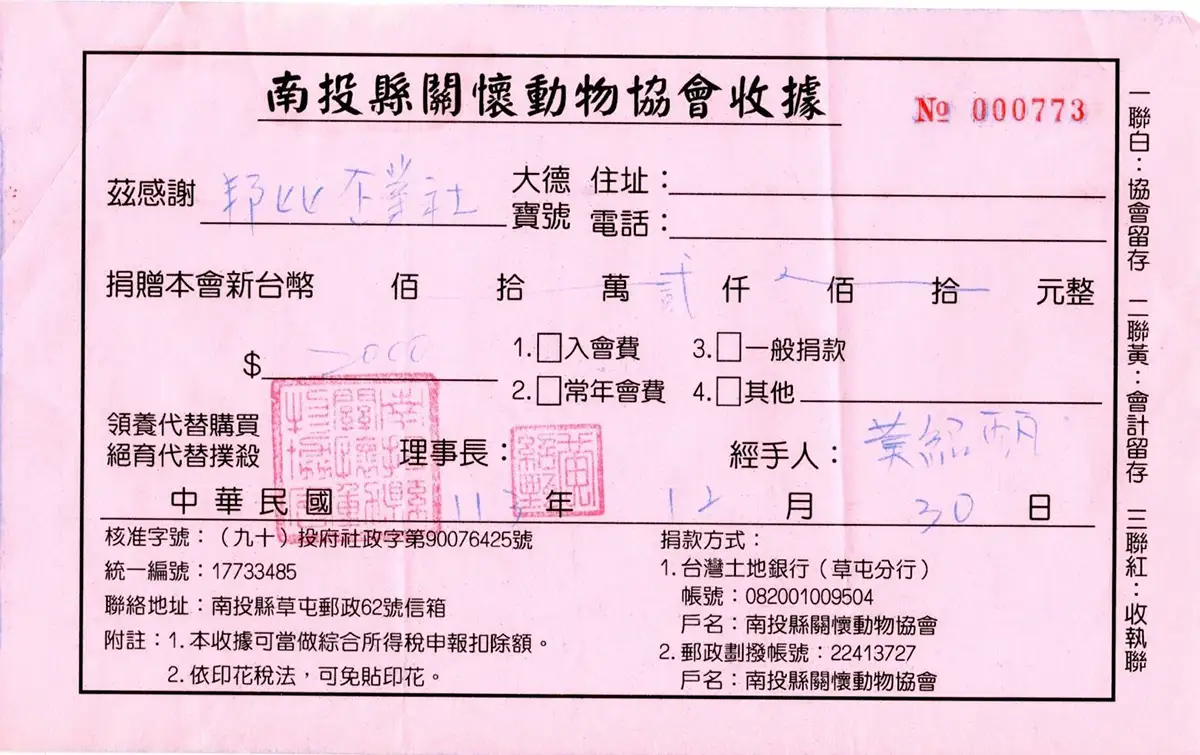 南投縣關懷動物協會收據
№ 000773
茲感謝 邦比企業社 大德 寶號
住址：
電話：
捐贈本會新台幣 佰 拾 萬 貳 仟 佰 拾 元整
$ 2000
1.□入會費 3.□一般捐款
2.□常年會費 4.□其他
領養代替購買
絕育代替撲殺
理事長： 經手人：
中華民國 113 年 12 月 30 日
核准字號：（九十）投府社政字第90076425號
統一編號：17733485
聯絡地址：南投縣草屯郵政62號信箱
附註：1.本收據可當做綜合所得稅申報扣除額。
2.依印花稅法，可免貼印花。
捐款方式：
1.台灣土地銀行（草屯分行）
帳號：082001009504
戶名：南投縣關懷動物協會
2.郵政劃撥帳號：22413727
戶名：南投縣關懷動物協會
一聯白：協會留存 二聯黃：會計留存 三聯紅：收執聯